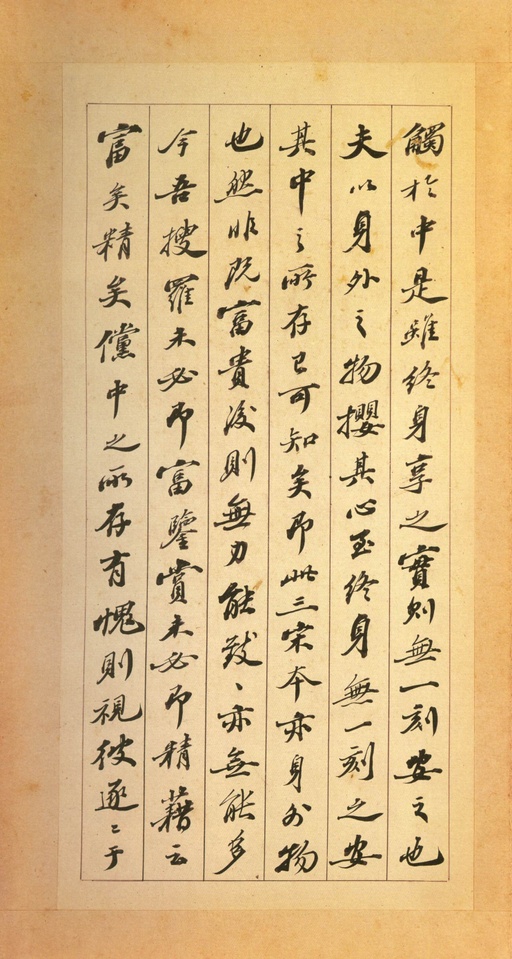 觸於中是雖終身享之實則無一刻安之也
夫以身外之物攖其心至終身無一刻之安
其中之所存已可知矣即此三宋本亦身外物
也然非既富貴後則無力能致々亦無能多
今吾搜羅未必即富鑒賞未必即精藉云
富矣精矣儻中之所存有愧則視彼逐々于